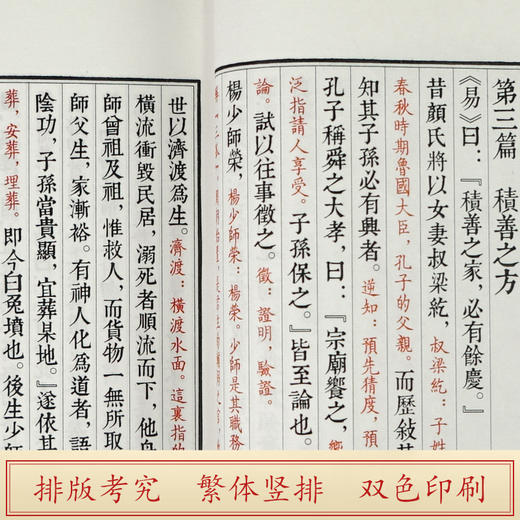 第三篇　積善之方
《易》曰：『積善之家，必有餘慶。』
昔顏氏將以女妻叔梁紇，叔梁紇：子姓
春秋時期魯國大臣，孔子的父親。而歷敘其
知其子孫必有興者。逆知：預先猜度，預
孔子稱舜之大孝，曰：『宗廟饗之，饗
泛指請人享受。子孫保之。』皆至論也。
論。試以往事徵之。徵：證明，驗證。
楊少師榮，楊少師榮：楊榮。少師是其職務
世以濟渡爲生。濟渡：橫渡水面。這裏指的
橫流衝毀民居，溺死者順流而下，他舟
師曾祖及祖，惟救人，而貨物一無所取
師父生，家漸裕。有神人化爲道者，語
陰功，子孫當貴顯，宜葬某地。』遂依其
葬，安葬，埋葬。即今白兔墳也。後生少師
排版考究　繁体竖排　双色印刷